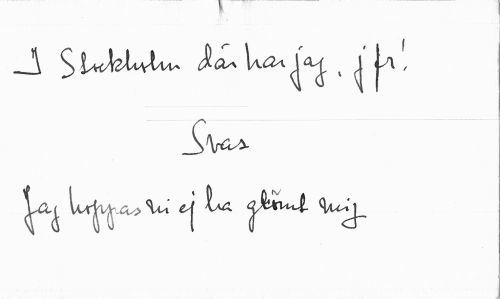 I Stockholm där har jag, jfr!
Svar
Jag hoppas ni ej ha glömt mig